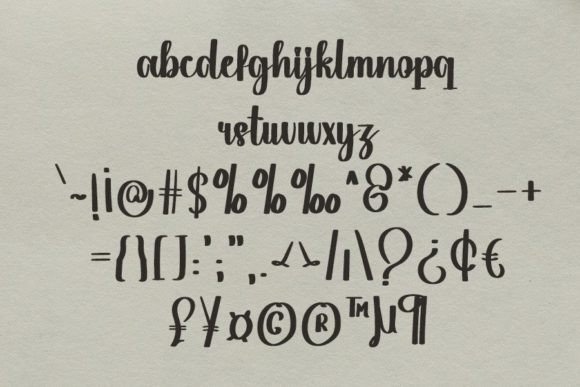 abcdefghijklmnopq
rstuvwxyz
`~!¡@#$%%‰^&*()_-+
={}[]:';",.<>/|\?¿¢€
£¥¤©®™µ¶